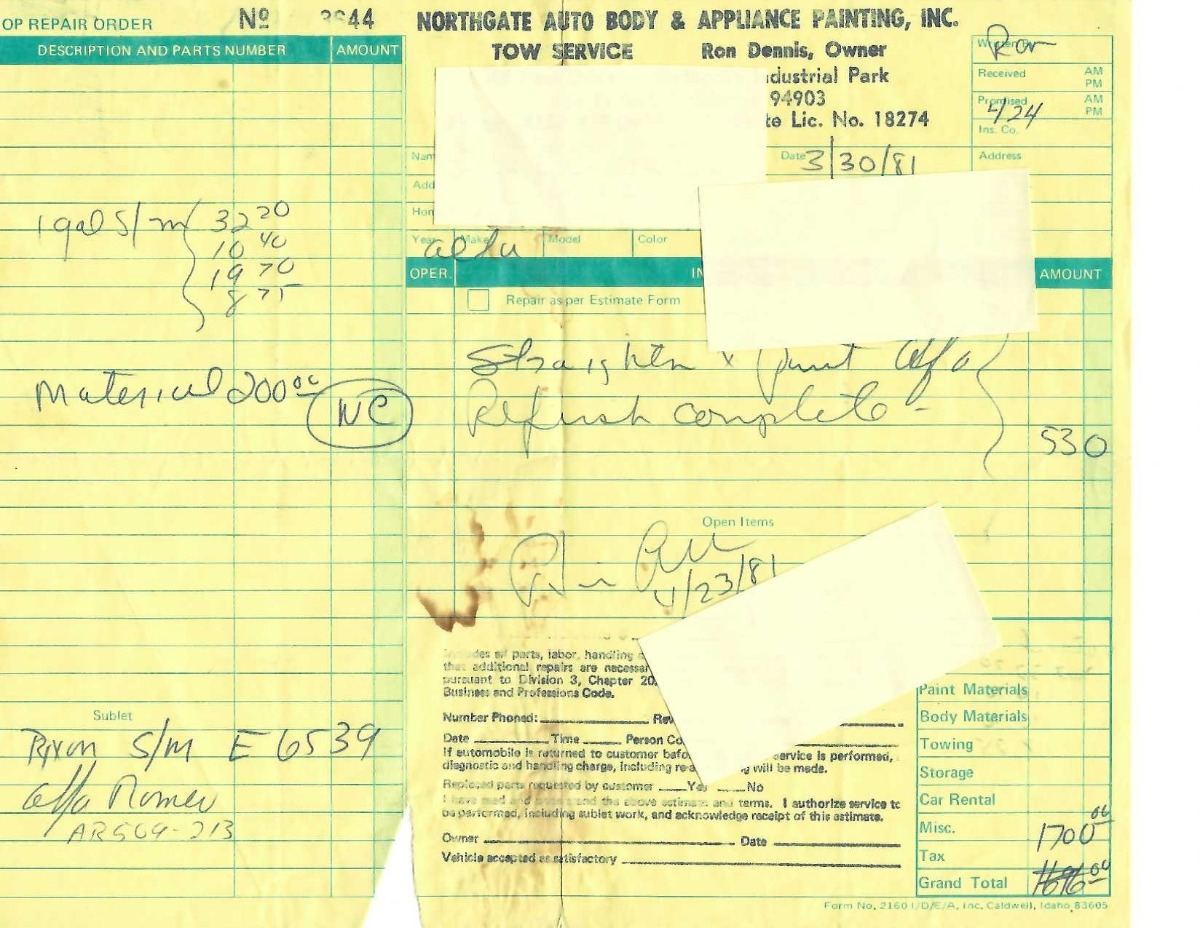 OP REPAIR ORDER
No 3644
DESCRIPTION AND PARTS NUMBER AMOUNT
1 gal S/m 32 20
10 40
19 70
8 75
Material 200 00
NC
Sublet
S/m E 6539
Alfa Romeo
AR509-213
NORTHGATE AUTO BODY & APPLIANCE PAINTING, INC.
TOW SERVICE Ron Dennis, Owner
dustrial Park
94903
te Lic. No. 18274
Ron
Received AM PM
Promised 4/24 AM PM
Ins. Co.
Nam
Date 3/30/81
Address
Add
Hon
Year Make Model Color
alfa
OPER. IN AMOUNT
Repair as per Estimate Form
Straighten & paint Alfa
Refinish complete -
530
Open Items
4/23/81
includes all parts, labor, handling
that additional repairs are necessar
pursuant to Division 3, Chapter 20,
Business and Professions Code.
Number Phoned: Re
Date Time Person Co
If automobile is returned to customer befo service is performed,
diagnostic and handling charge, including rea g will be made.
Replaced parts requested by customer Yes No
I have read and understand the above estimate and terms. I authorize service to
be performed, including sublet work, and acknowledge receipt of this estimate.
Owner Date
Vehicle accepted as satisfactory
Paint Materials
Body Materials
Towing
Storage
Car Rental
Misc. 1700 00
Tax
Grand Total
Form No. 2160 I/D/E/A, Inc. Caldwell, Idaho 83605